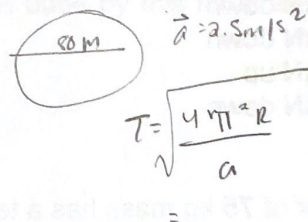 80 M
a⃗ = 2.5m/s²
T = √(4π²R / a)
=